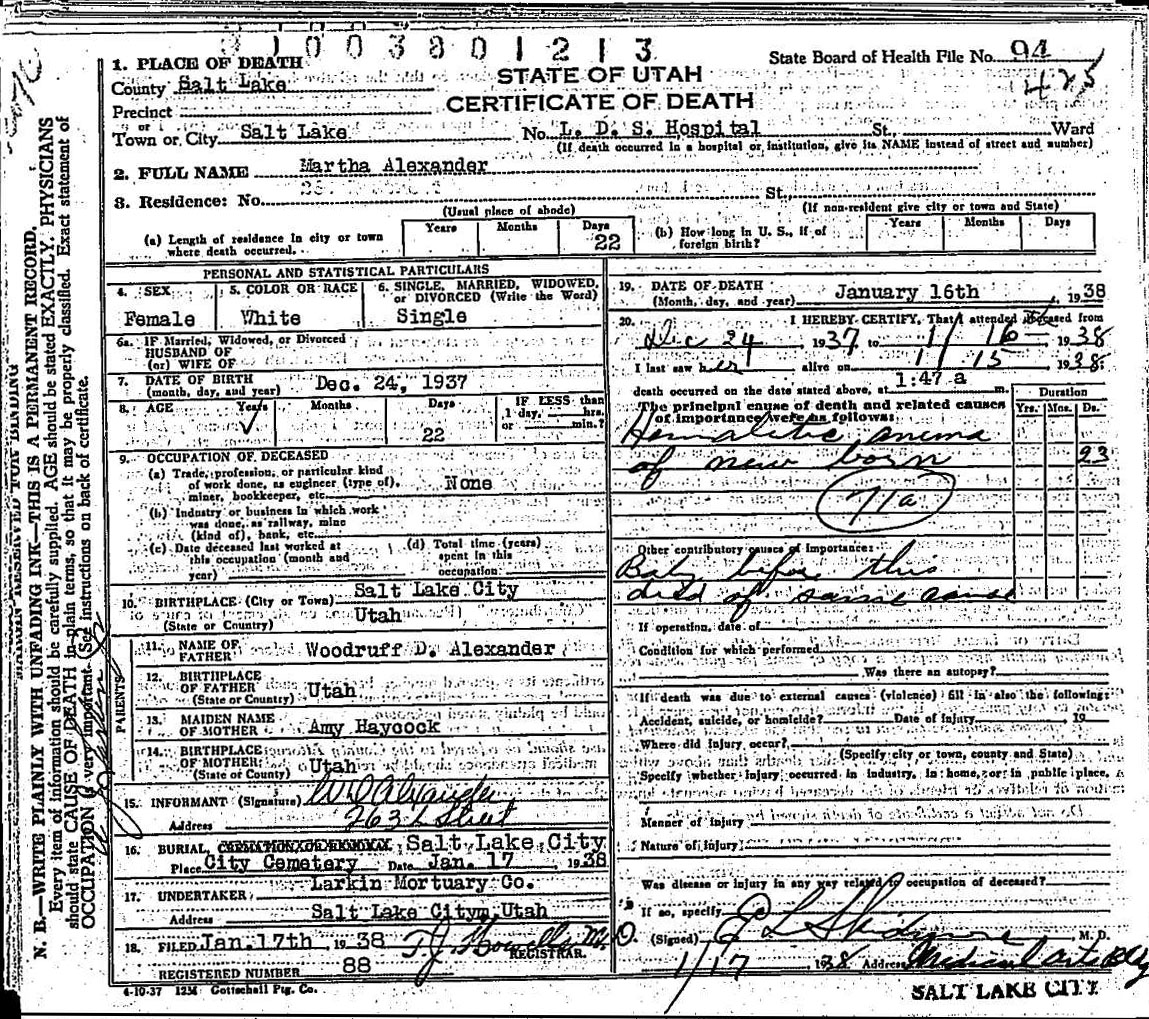 31003801213
State Board of Health File No. 94
425
STATE OF UTAH
CERTIFICATE OF DEATH
1. PLACE OF DEATH
County Salt Lake
Precinct
or
Town or City Salt Lake No. L. D. S. Hospital St., Ward
(If death occurred in a hospital or institution, give its NAME instead of street and number)
2. FULL NAME Martha Alexander
3. Residence: No. St.,
(Usual place of abode) (If non-resident give city or town and State)
(a) Length of residence in city or town where death occurred. Years Months Days 22
(b) How long in U. S., if of foreign birth? Years Months Days
PERSONAL AND STATISTICAL PARTICULARS
4. SEX Female
5. COLOR OR RACE White
6. SINGLE, MARRIED, WIDOWED, or DIVORCED (Write the Word) Single
6a. IF Married, Widowed, or Divorced
HUSBAND OF
(or) WIFE OF
7. DATE OF BIRTH (month, day, and year) Dec. 24, 1937
8. AGE Years ✓ Months Days 22 IF LESS than 1 day, hrs. or min.?
9. OCCUPATION OF DECEASED
(a) Trade, profession, or particular kind
of work done, as engineer (type of),
miner, bookkeeper, etc. None
(b) Industry or business in which work
was done, as railway, mine
(kind of), bank, etc.
(c) Date deceased last worked at
this occupation (month and
year)
(d) Total time (years)
spent in this
occupation
10. BIRTHPLACE (City or Town) Salt Lake City
(State or Country) Utah
PARENTS
11. NAME OF FATHER Woodruff D. Alexander
12. BIRTHPLACE OF FATHER (State or Country) Utah
13. MAIDEN NAME OF MOTHER Amy Haycock
14. BIRTHPLACE OF MOTHER (State of County) Utah
15. INFORMANT (Signature) W D Alexander
Address 263 L Street
16. BURIAL, Salt Lake City
Place City Cemetery Date Jan. 17 1938
17. UNDERTAKER Larkin Mortuary Co.
Address Salt Lake Citym, Utah
18. FILED Jan. 17th 1938
REGISTRAR.
REGISTERED NUMBER 88
4-10-37 12M Gottschall Ptg. Co.
19. DATE OF DEATH
(Month, day, and year) January 16th, 1938
20. I HEREBY CERTIFY, That I attended deceased from
Dec 24, 1937 to 1/16 1938
I last saw her alive on 1/15 1938
death occurred on the date stated above, at 1:47 a m.
The principal cause of death and related causes
of importance were as follows:
Duration
Yrs. Mos. Ds.
Hemolitic anema
of new born 23
Other contributory causes of importance:
Baby before this
died of same cause
If operation, date of
Condition for which performed
Was there an autopsy?
If death was due to external causes (violence) fill in also the following:
Accident, suicide, or homicide? Date of Injury 19
Where did injury occur?
(Specify city or town, county and State)
Specify whether injury occurred in industry, in home, or in public place.
Manner of injury
Nature of injury
Was disease or injury in any way related to occupation of deceased?
If so, specify
(Signed) E L Skidmore M. D.
1/17 1938 Address Medical Arts Bldg
SALT LAKE CITY
N. B.—WRITE PLAINLY WITH UNFADING INK—THIS IS A PERMANENT RECORD.
Every item of information should be carefully supplied. AGE should be stated EXACTLY. PHYSICIANS
should state CAUSE OF DEATH in plain terms, so that it may be properly classified. Exact statement of
OCCUPATION is very important. (See instructions on back of certificate.
MARGIN RESERVED FOR BINDING